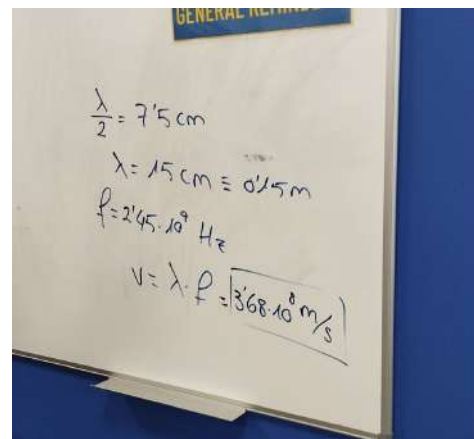 GENERAL
λ/2 = 7'5 cm
λ = 15 cm ≡ 0'15 m
f = 2'45·10⁹ Hz
v = λ·f = 3'68·10⁸ m/s